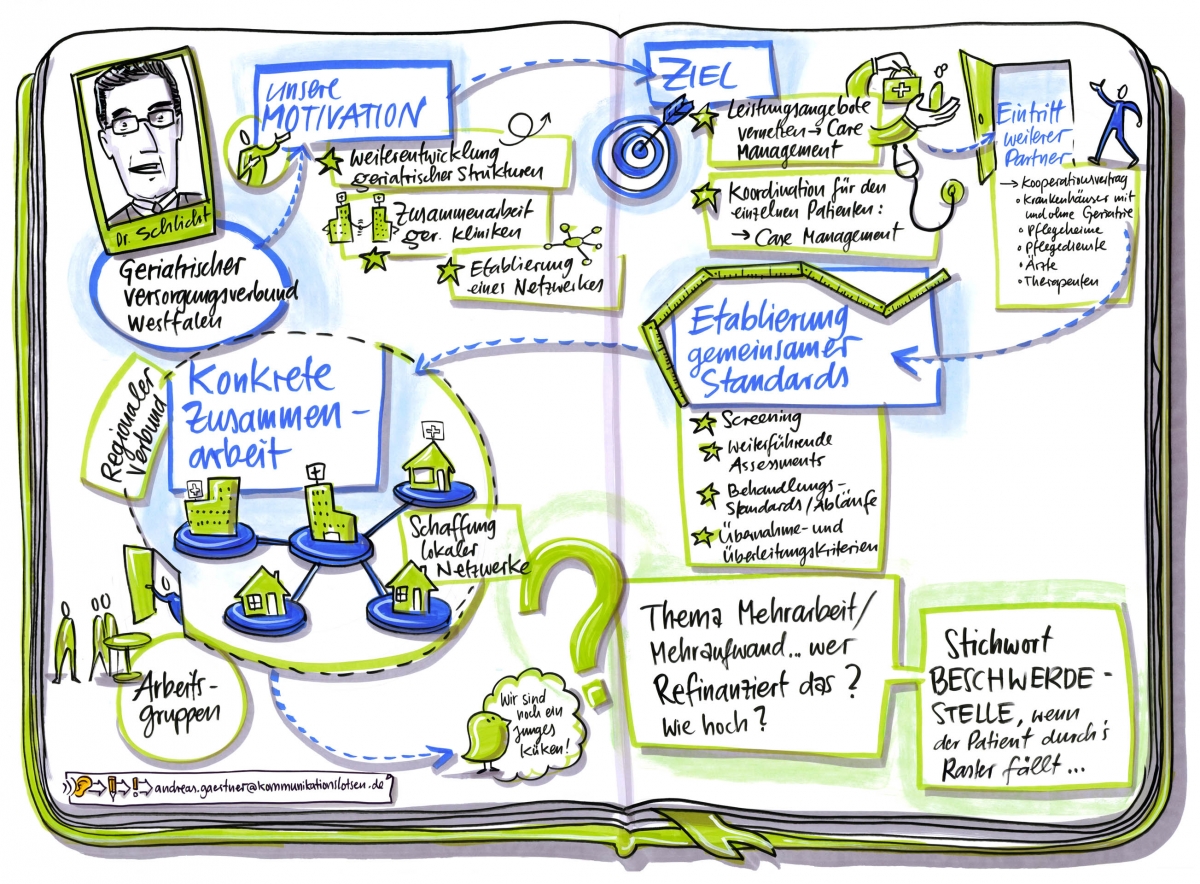 Dr. Schlicht
Geriatrischer
Versorgungsverbund
Westfalen
unsere
MOTIVATION
Weiterentwicklung
geriatrischer Strukturen
Zusammenarbeit
ger. Kliniken
Etablierung
eines Netzwerkes
ZIEL
Leistungsangebote
vernetten → Care
Management
Koordination für den
einzelnen Patienten:
→ Care Management
Eintritt
weiterer
Partner
→ Kooperationsvertrag
Krankenhäuser mit
und ohne Geriatrie
Pflegeheime
Pflegedienste
Ärzte
Therapeuten
Etablierung
gemeinsamer
Standards
Screening
Weiterführende
Assessments
Behandlungs-
standards/Abläufe
Übernahme- und
Überleitungskriterien
Konkrete
Zusammen-
arbeit
Regionaler
Verbund
Schaffung
lokaler
Netzwerke
Arbeits-
gruppen
Wir sind
noch ein
junges
Küken!
Thema Mehrarbeit/
Mehraufwand... wer
Refinanziert das?
Wie hoch?
Stichwort
BESCHWERDE-
STELLE, wenn
der Patient durch's
Raster fällt...
andreas.gaertner@kommunikationslotsen.de